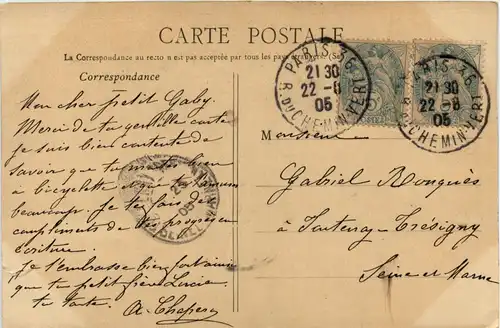 CARTE POSTALE
La Correspondance au recto n'est pas acceptée par tous les pays étrangers (Se
Correspondance
Mon cher petit Gaby.
Merci de ta gentille carte
je suis bien contente de
savoir que tu
à bicyclette et que tu t'amuses
beaucoup. je te fais des
compliments de tes progrès en
écriture.
Je t'embrasse bien fort ainsi
que ta petit frère Lucien
ta tante.
A. Chaper
PARIS 36
21 30
22 -8
05
R. DU CHEMIN VERT
PARIS 36
21 30
22 -8
05
R. DU CHEMIN VERT
Monsieur
Gabriel Bouquès
à Fontenay-Trésigny
Seine et Marne